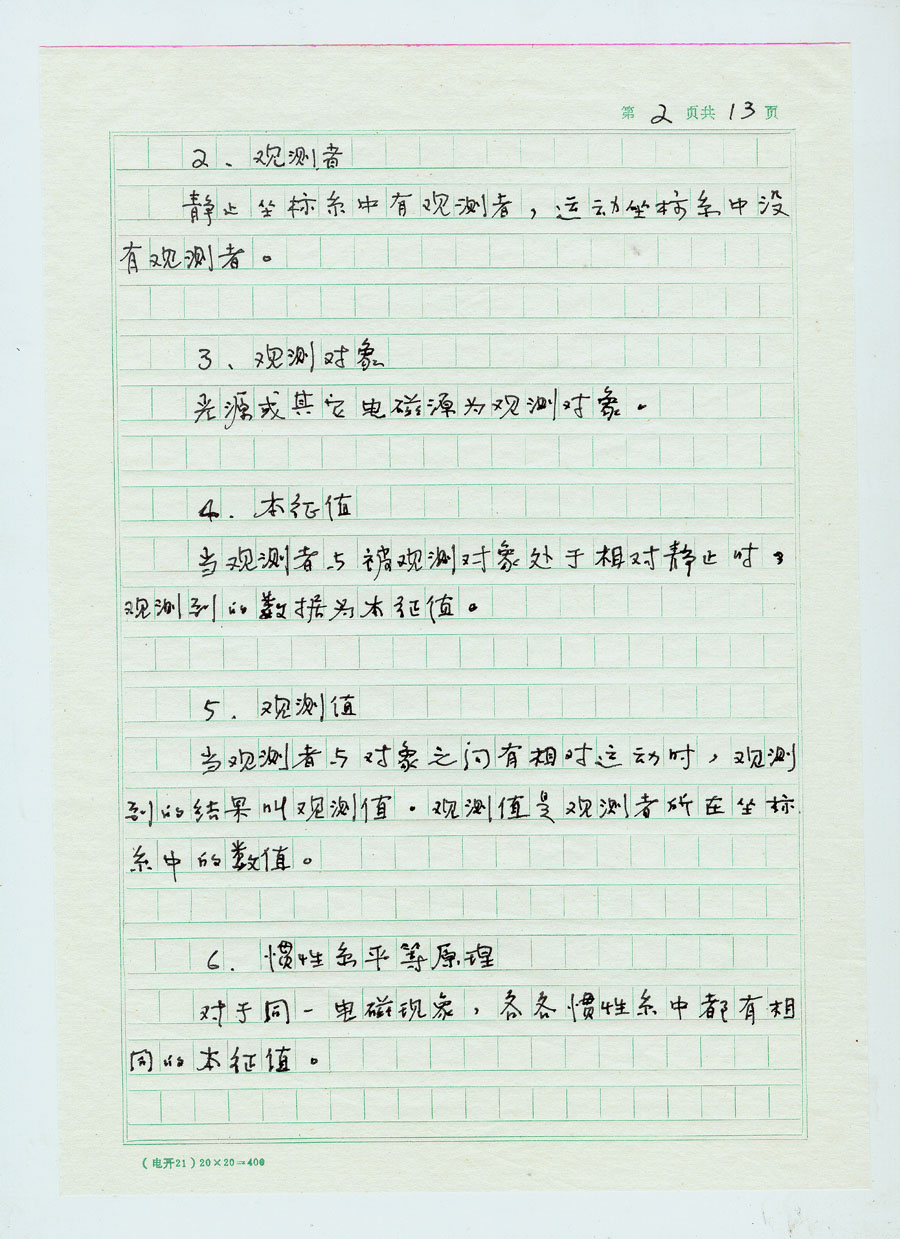 第 2 页共 13 页
2、观测者
静止坐标系中有观测者，运动坐标系中没
有观测者。
3、观测对象
光源或其它电磁源为观测对象。
4．本征值
当观测者与被观测对象处于相对静止时，
观测到的数据为本征值。
5．观测值
当观测者与对象之间有相对运动时，观测
到的结果叫观测值．观测值是观测者所在坐标
系中的数值。
6．惯性系平等原理
对于同一电磁现象，各各惯性系中都有相
同的本征值。
（电开21）20×20＝400